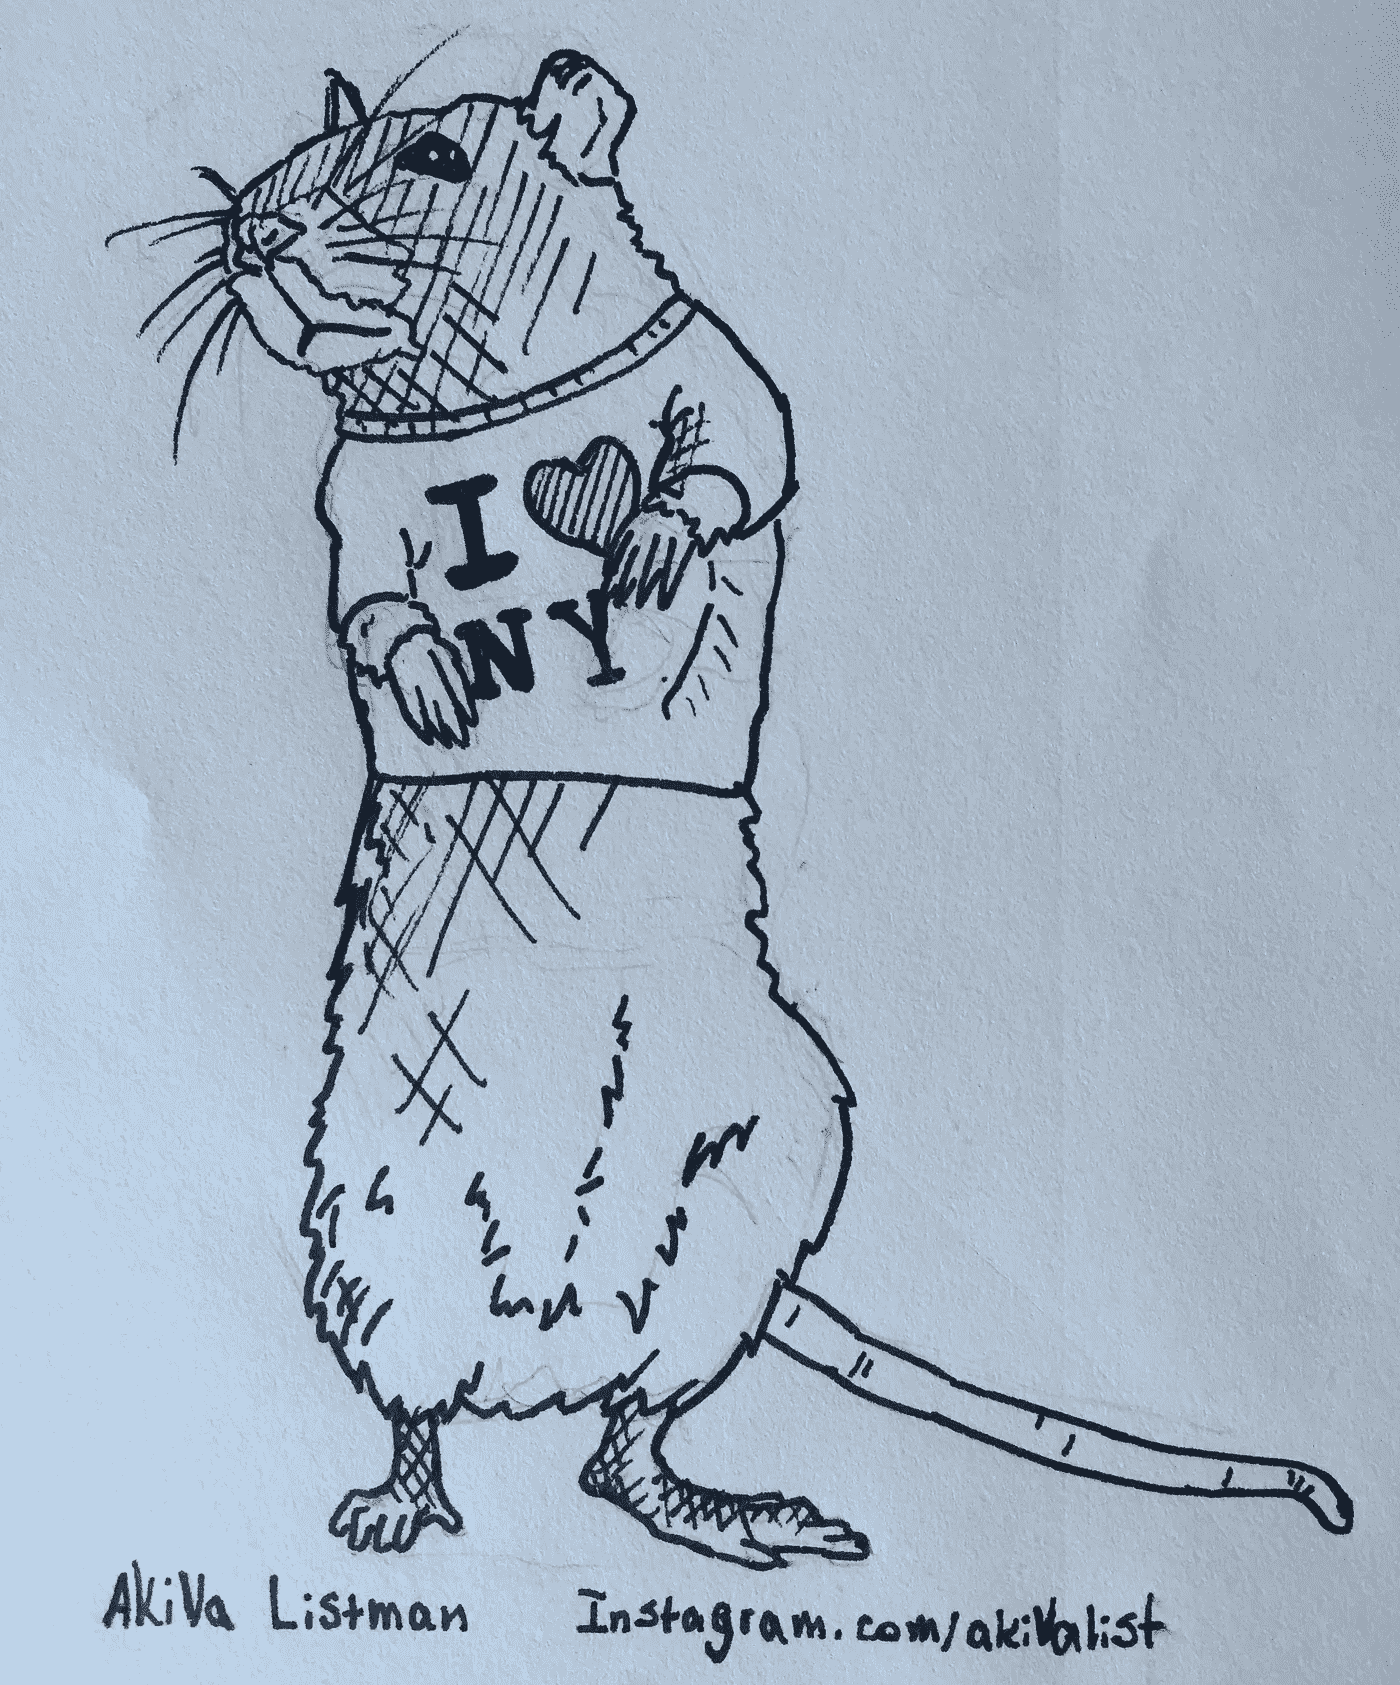 I ♥
NY
AkiVa Listman
Instagram.com/akiValist